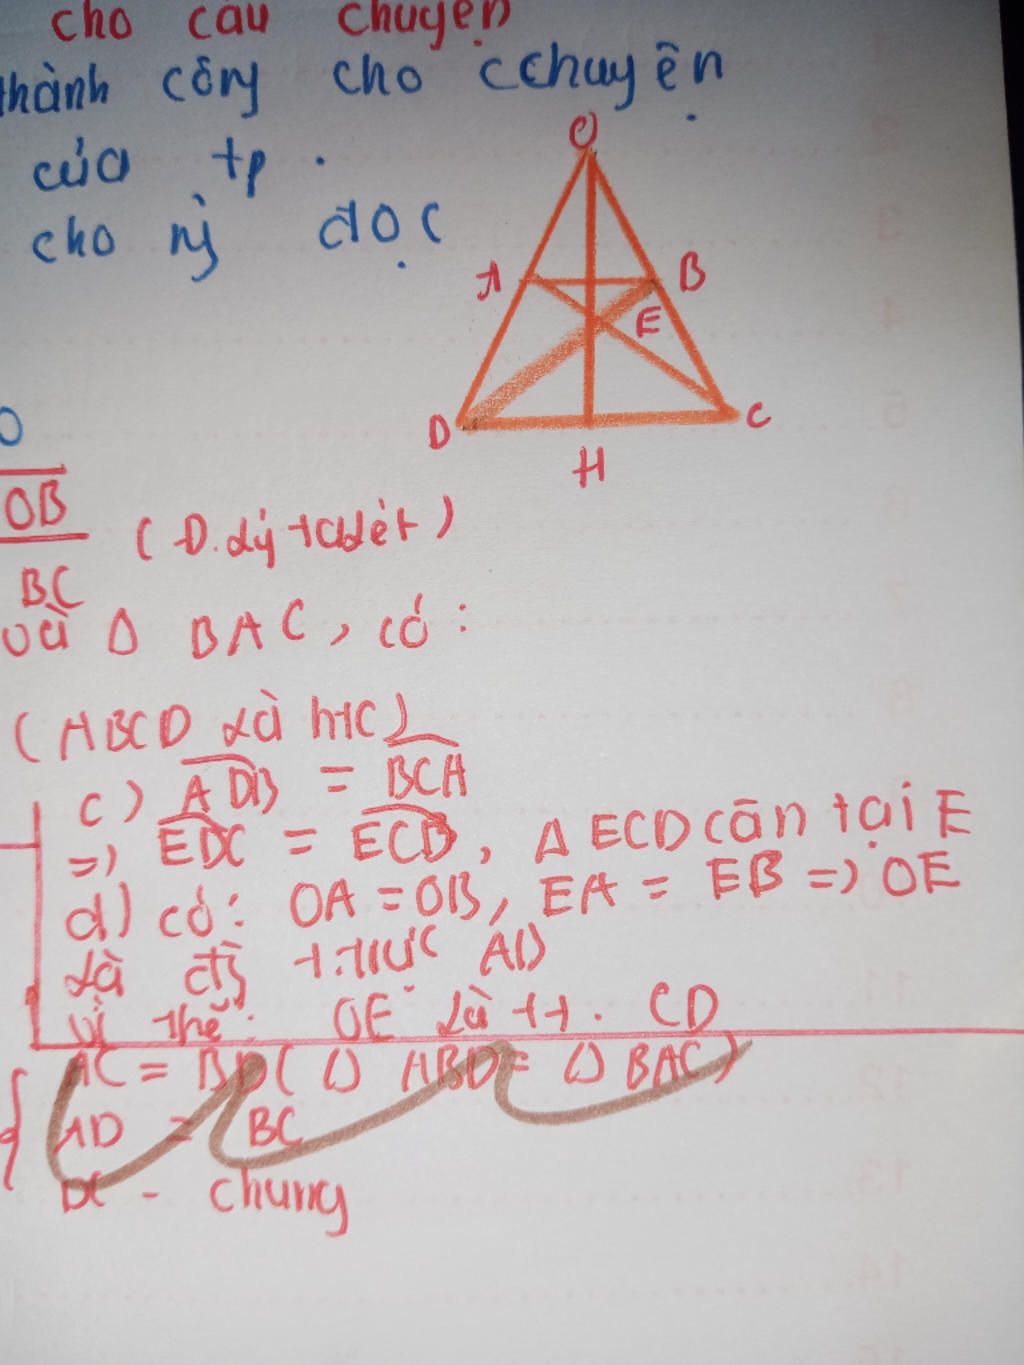 cho câu chuyện
thành công cho cchuyện
của tp.
cho ng đọc
O
A B
E
D C
H
O
OB
BC
(Đ.lý talét)
và Δ BAC, có:
(ABCD là htc)
c) ADB = BCA
=> EDC = ECD, Δ ECD cân tại E
d) có: OA = OB, EA = EB => OE
là đg t.trực AB
vì thế: OE là tt. CD
AC = BD (Δ ABD = Δ BAC)
AD = BC
DC - chung